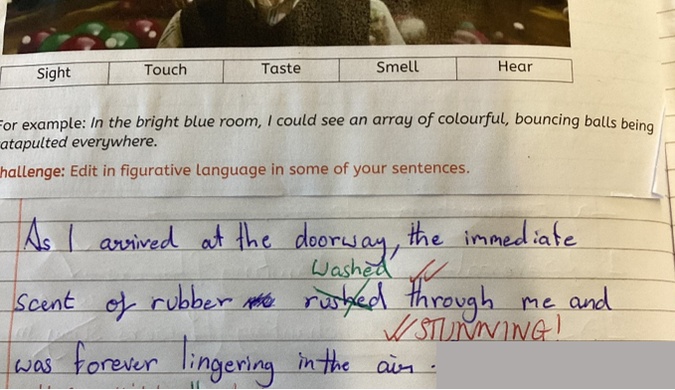 Sight Touch Taste Smell Hear
For example: In the bright blue room, I could see an array of colourful, bouncing balls being
atapulted everywhere.
hallenge: Edit in figurative language in some of your sentences.
As I arrived at the doorway, the immediate
washed
scent of rubber rushed through me and
STUNNING!
was forever lingering in the air.